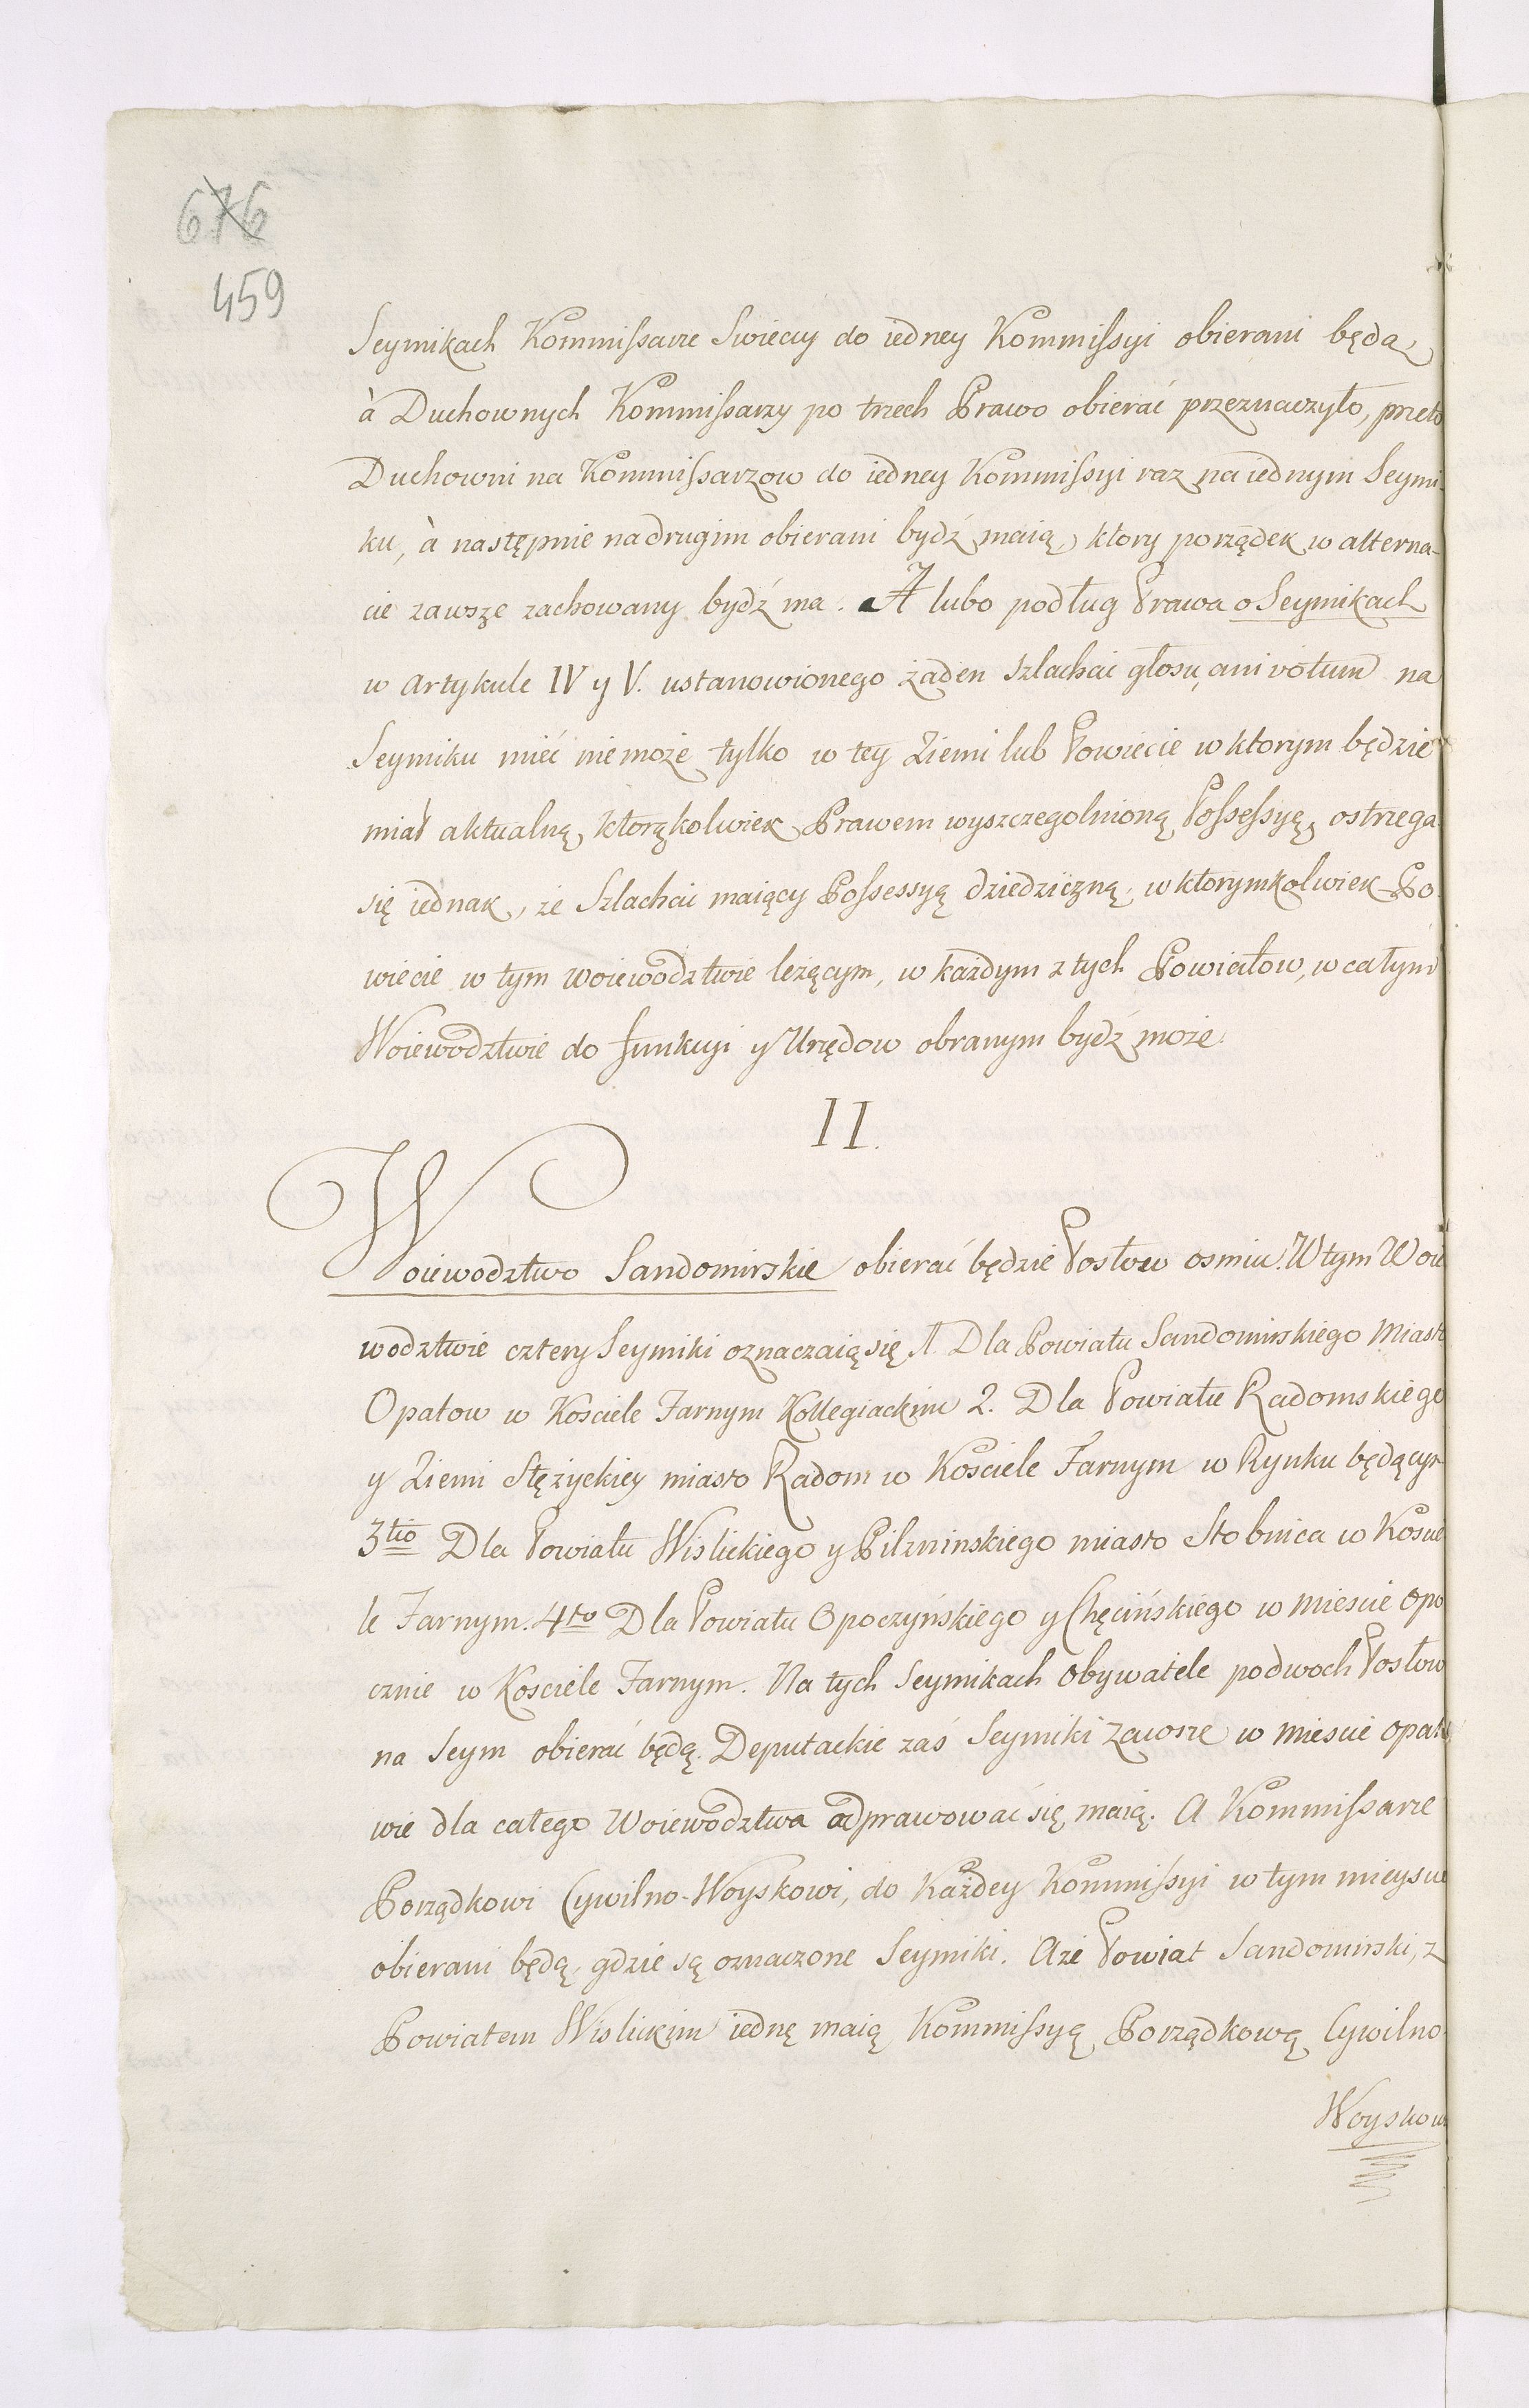 676
459
Seymikach Kommissarze Swieccy do iedney Kommissyi obierani będą,
à Duchownych Kommissarzy po trzech Prawo obierać przeznaczyło, przeto
Duchowni na Kommissarzow do iedney Kommissyi raz na iednym Seymi-
ku, à następnie na drugim obierani bydź maią, ktory porządek w alterna-
cie zawsze zachowany bydź ma. A lubo podług Prawa o Seymikach
w Artykule IV y V. ustanowionego żaden Szlachcic głosu, ani votum na
Seymiku mieć nie może tylko w tey Ziemi lub Powiecie w ktorym będzie
miał aktualną, ktorąkolwiek Prawem wyszczegolnioną Possessyę, ostrzega
się iednak, że Szlachcic maiący Possessyą dziedziczną, w ktorymkolwiek Po-
wiecie w tym Woiewodztwie leżącym, w każdym z tych Powiatow, w całym
Woiewodztwie do funkcyi y Urzędow obranym bydź może.
II.
Woiewodztwo Sandomirskie obierać będzie Posłow osmiu. W tym Woie
wodztwie cztery Seymiki oznaczaią się 1. Dla Powiatu Sandomirskiego Miasto
Opatow w Kosciele Farnym Kollegiackim 2. Dla Powiatu Radomskiego
y Ziemi Stężyckiey miasto Radom w Kosciele Farnym w Rynku będącym
3tio Dla Powiatu Wislickiego y Pilzninskiego miasto Stobnica w Koscie
le Farnym. 4to Dla Powiatu Opoczyńskiego y Chęcińskiego w miescie Opo
cznie w Kosciele Farnym. Na tych Seymikach Obywatele po dwoch Posłow
na Seym obierać będą. Deputackie zaś Seymiki zawsze w miescie Opato
wie dla całego Woiewodztwa odprawować się maią. A Kommissarze
Porządkowi Cywilno-Woyskowi, do każdey Kommissyi w tym mieyscu
obierani będą, gdzie są oznaczone Seymiki. A że Powiat Sandomirski, z
Powiatem Wislickim iednę maią Kommissyą Porządkową Cywilno
Woyskow